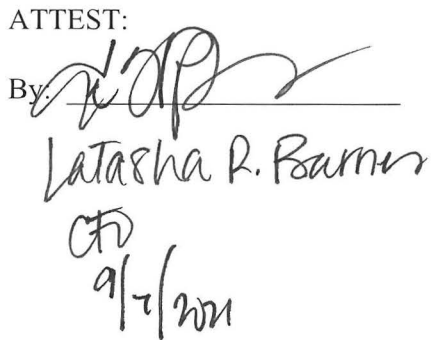 ATTEST:
By:
LaTasha R. Barnes
CFO
9/7/2021